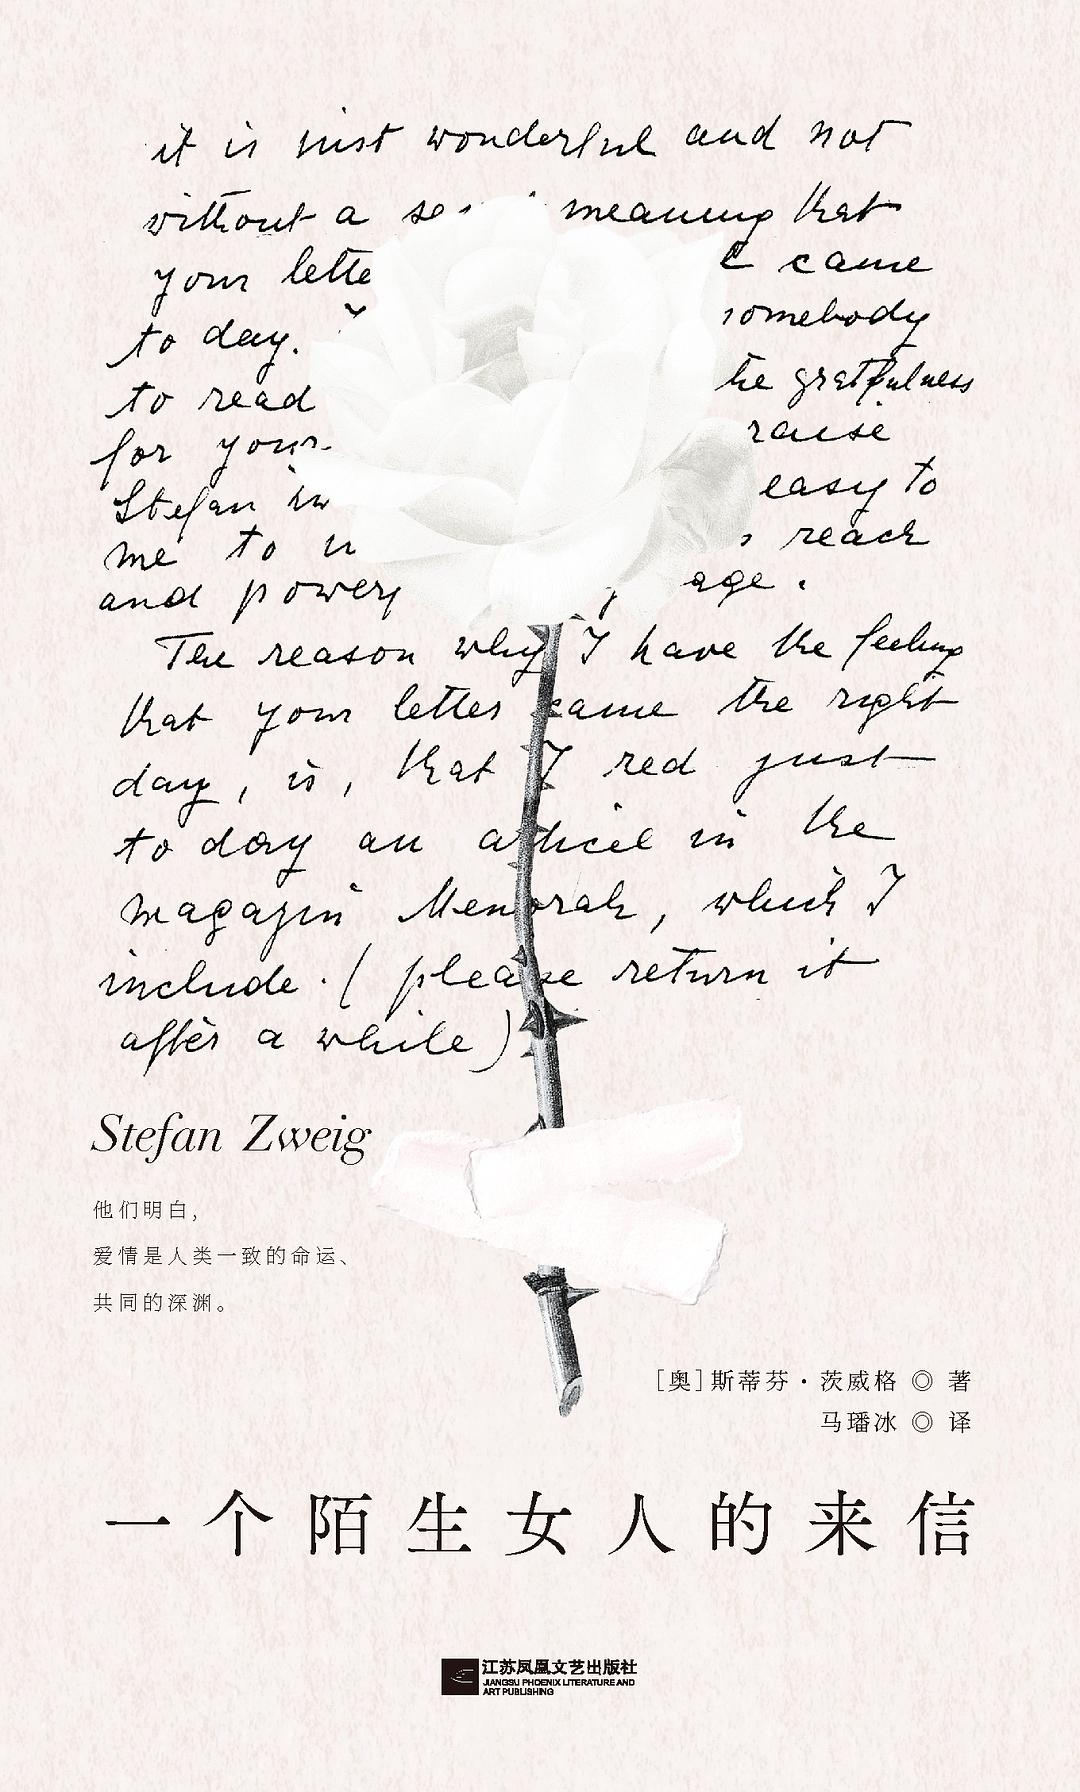 it is just wonderful and not
without a meaning that
your lette came
to day. somebody
to read the gratfulness
for your raise
Stefan easy to
me to reach
and power age.
The reason why I have the feeling
that your letter came the right
day, is, that I red just
to day an articel in the
magazin Menorah, which I
include. (please return it
after a while)
Stefan Zweig
他们明白,
爱情是人类一致的命运、
共同的深渊。
[奥]斯蒂芬·茨威格 ◎ 著
马璠冰 ◎ 译
一个陌生女人的来信
江苏凤凰文艺出版社
JIANGSU PHOENIX LITERATURE AND
ART PUBLISHING